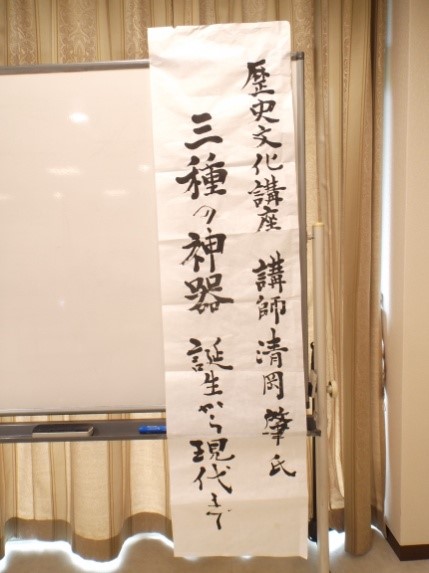 歴史文化講座 講師 清岡肇氏
三種の神器 誕生から現代まで